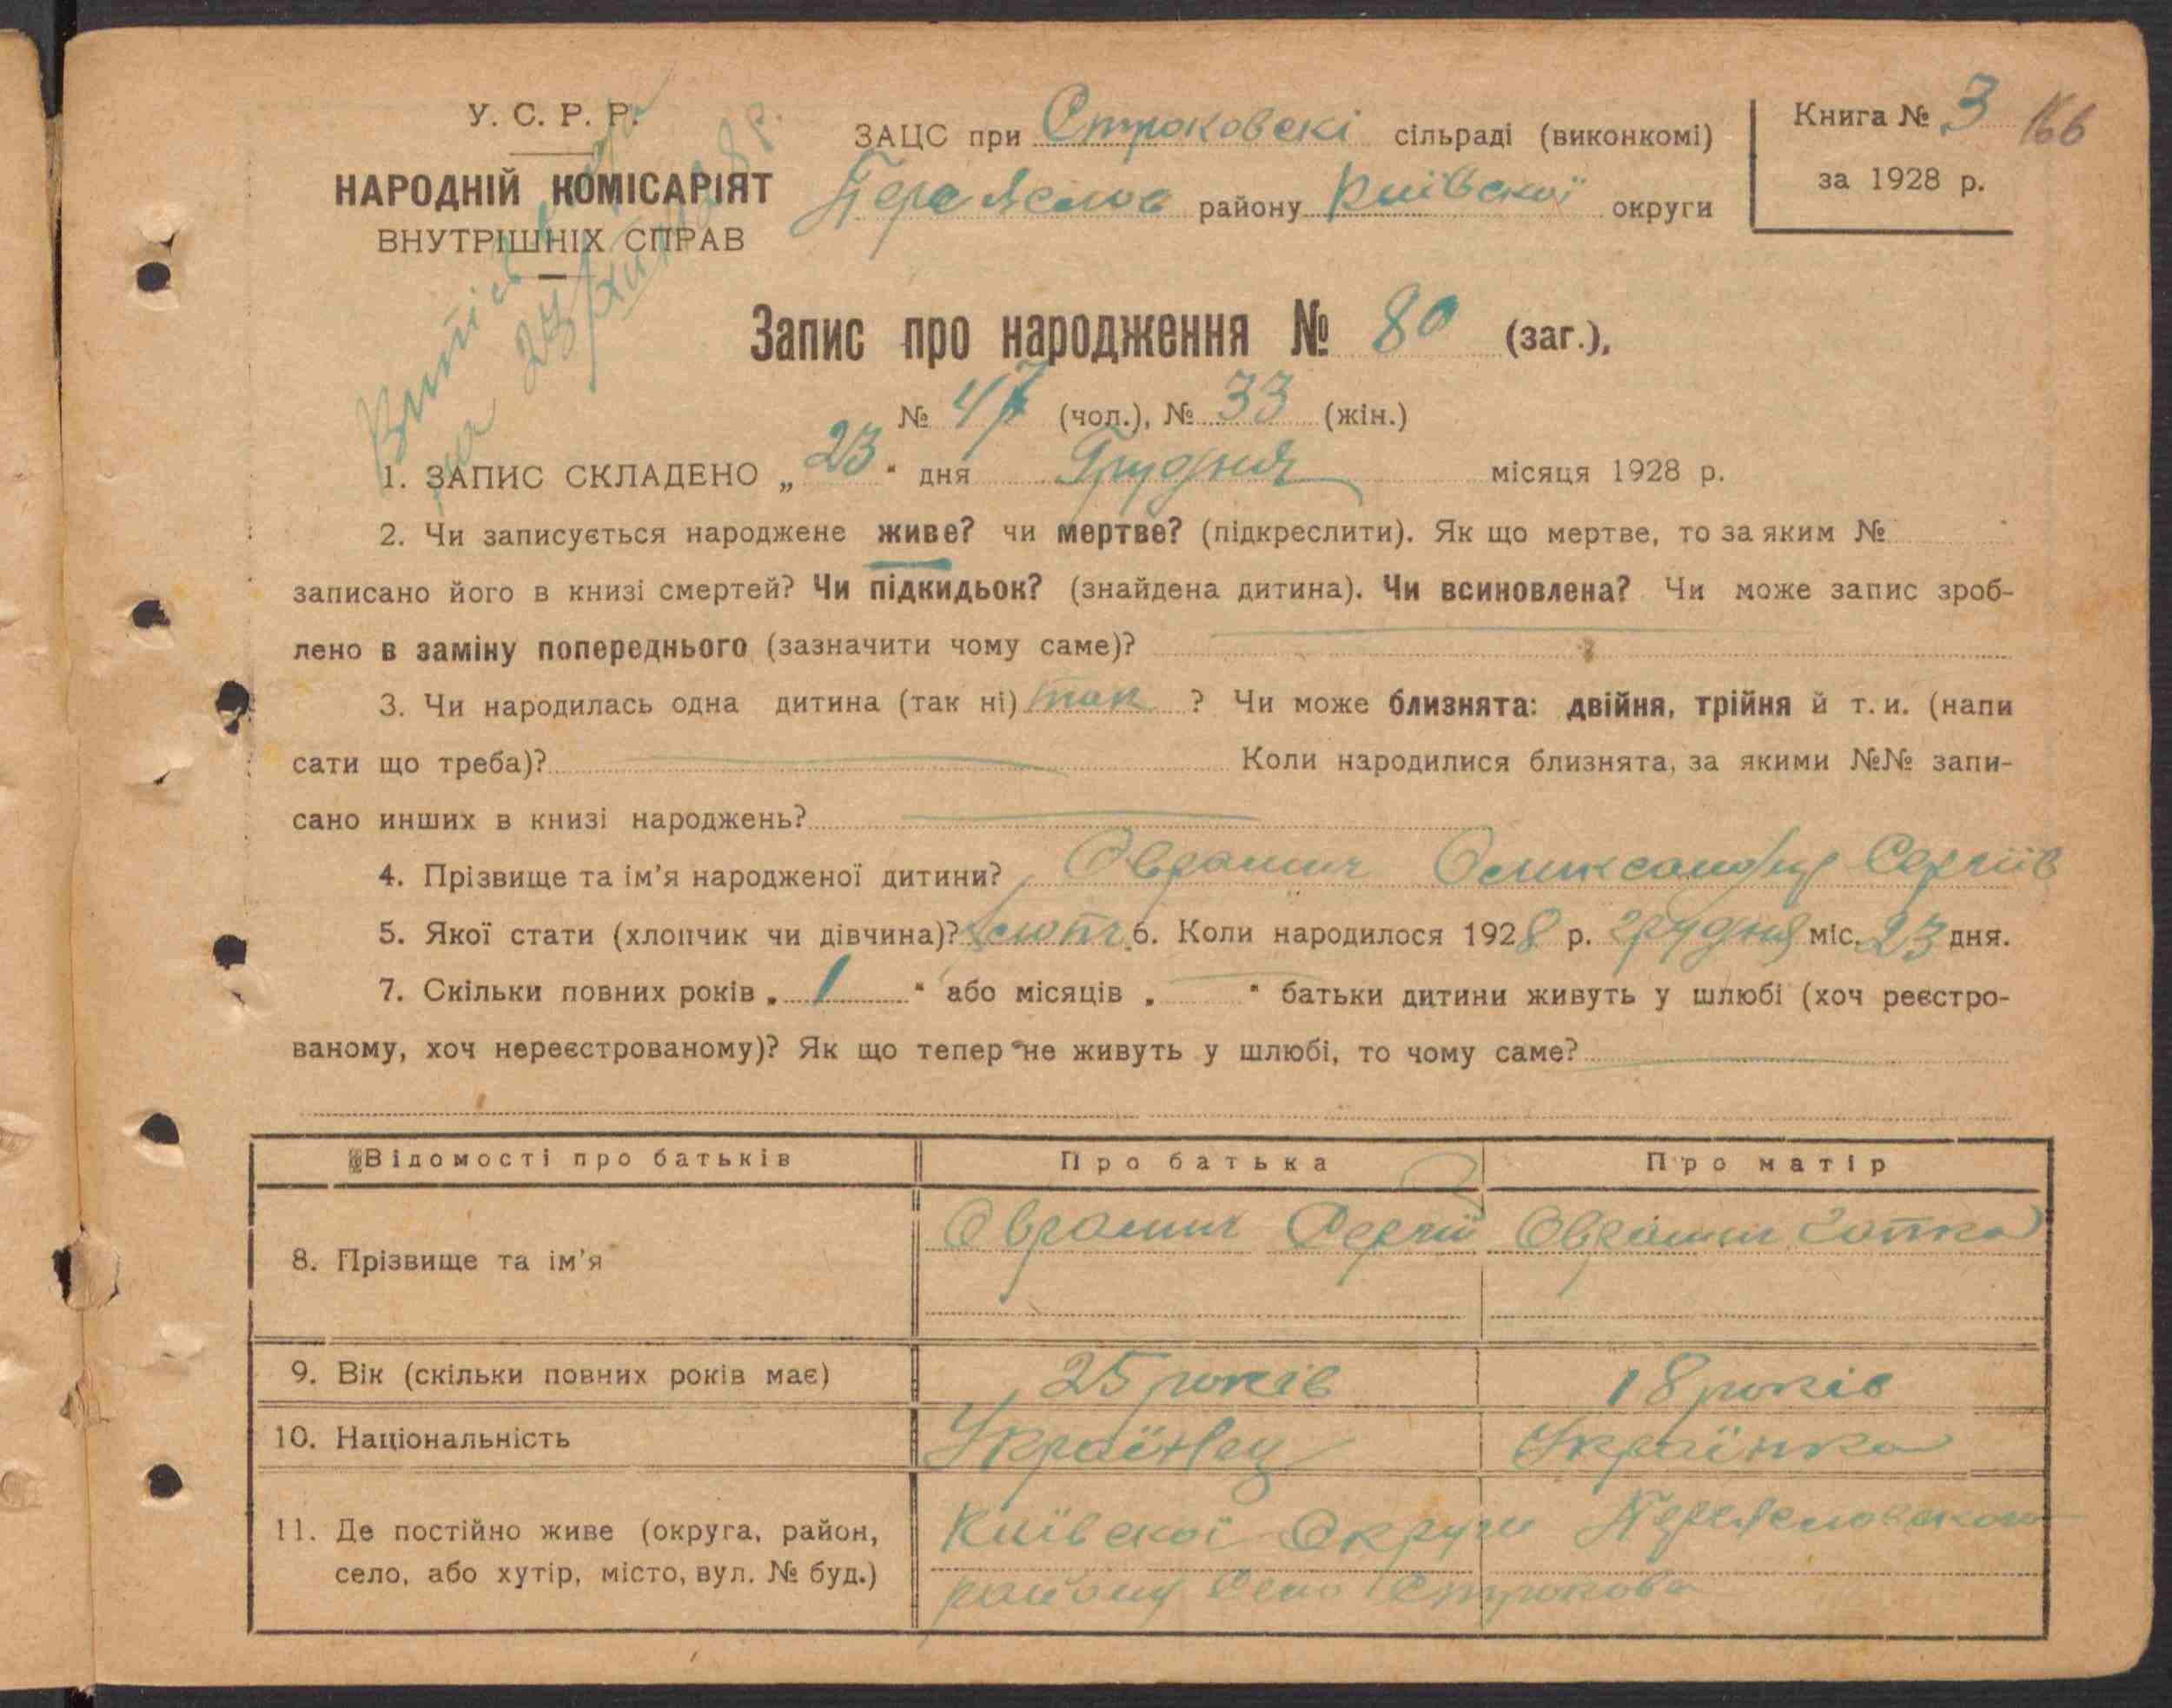 У. С. Р. Р.
НАРОДНІЙ КОМІСАРІЯТ
ВНУТРІШНІХ СПРАВ
ЗАЦС при Строковскі сільраді (виконкомі)
району Київскої округи
Книга № 3 166
за 1928 р.
Запис про народження № 80 (заг.),
№ 47 (чол.), № 33 (жін.)
1. ЗАПИС СКЛАДЕНО „ 23 “ дня Грудня місяця 1928 р.
2. Чи записується народжене живе? чи мертве? (підкреслити). Як що мертве, то за яким №
записано його в книзі смертей? Чи підкидьок? (знайдена дитина). Чи всиновлена? Чи може запис зроб-
лено в заміну попереднього (зазначити чому саме)?
3. Чи народилась одна дитина (так ні) так ? Чи може близнята: двійня, трійня й т. и. (напи
сати що треба)? Коли народилися близнята, за якими №№ запи-
сано инших в книзі народжень?
4. Прізвище та ім’я народженої дитини? Сергіїв
5. Якої стати (хлопчик чи дівчина)? 6. Коли народилося 1928 р. грудня міс. 23 дня.
7. Скільки повних років „ 1 “ або місяців „ “ батьки дитини живуть у шлюбі (хоч реєстро-
ваному, хоч нереєстрованому)? Як що тепер не живуть у шлюбі, то чому саме?
Відомості про батьків Про батька Про матір
8. Прізвище та ім’я Сергій
9. Вік (скільки повних років має) 25 років 18 років
10. Національність Українец Українка
11. Де постійно живе (округа, район, Київскої Округи
село, або хутір, місто, вул. № буд.) району Село Строкова